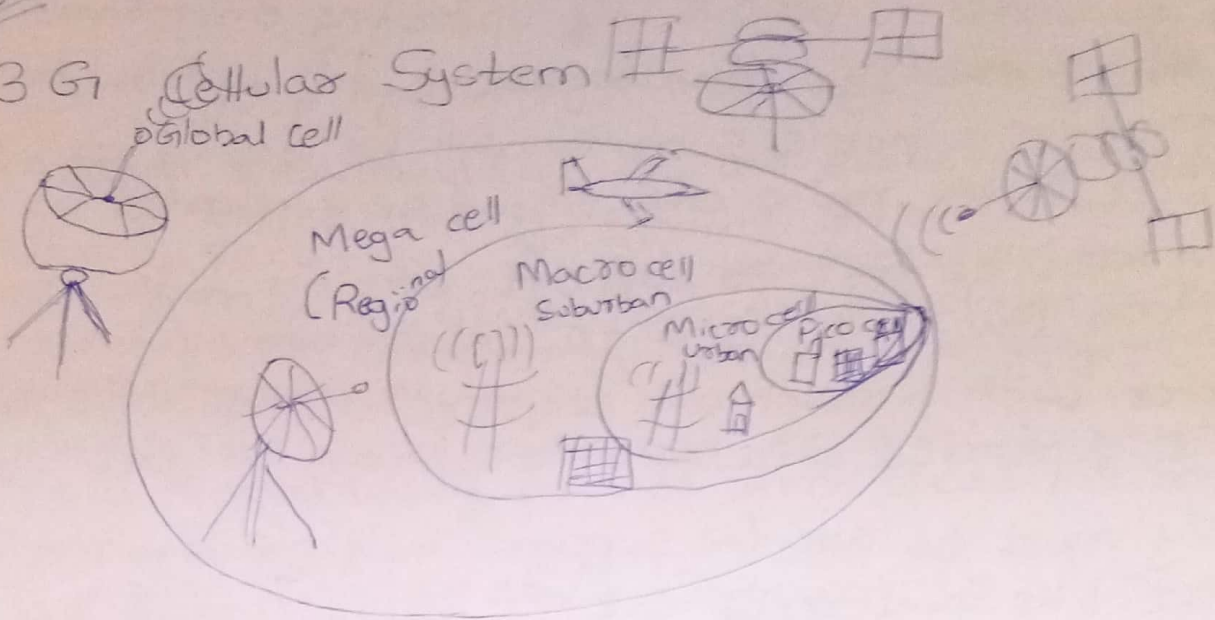 3 G Cellular System
Global cell
Mega cell
(Regional
Macro cell
Suburban
Micro cell
Urban
Pico cell